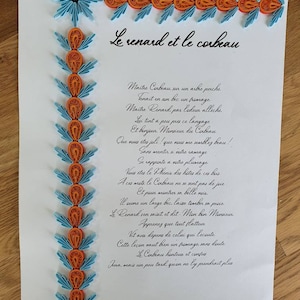 Le renard et le corbeau
Maître Corbeau, sur un arbre perché,
Tenait en son bec un fromage.
Maître Renard, par l'odeur alléché,
Lui tint à peu près ce langage
Et bonjour, Monsieur du Corbeau
Que vous êtes joli ! que vous me semblez beau !
Sans mentir, si votre ramage
Se rapporte à votre plumage
Vous êtes le Phénix des hôtes de ces bois
A ces mots le Corbeau ne se sent pas de joie
Et pour montrer sa belle voix,
Il ouvre un large bec, laisse tomber sa proie
Le Renard s'en saisit et dit : Mon bon Monsieur
Apprenez que tout flatteur
Vit aux dépens de celui qui l'écoute
Cette leçon vaut bien un fromage, sans doute
Le Corbeau honteux et confus
Jura, mais un peu tard, qu'on ne l'y prendrait plus